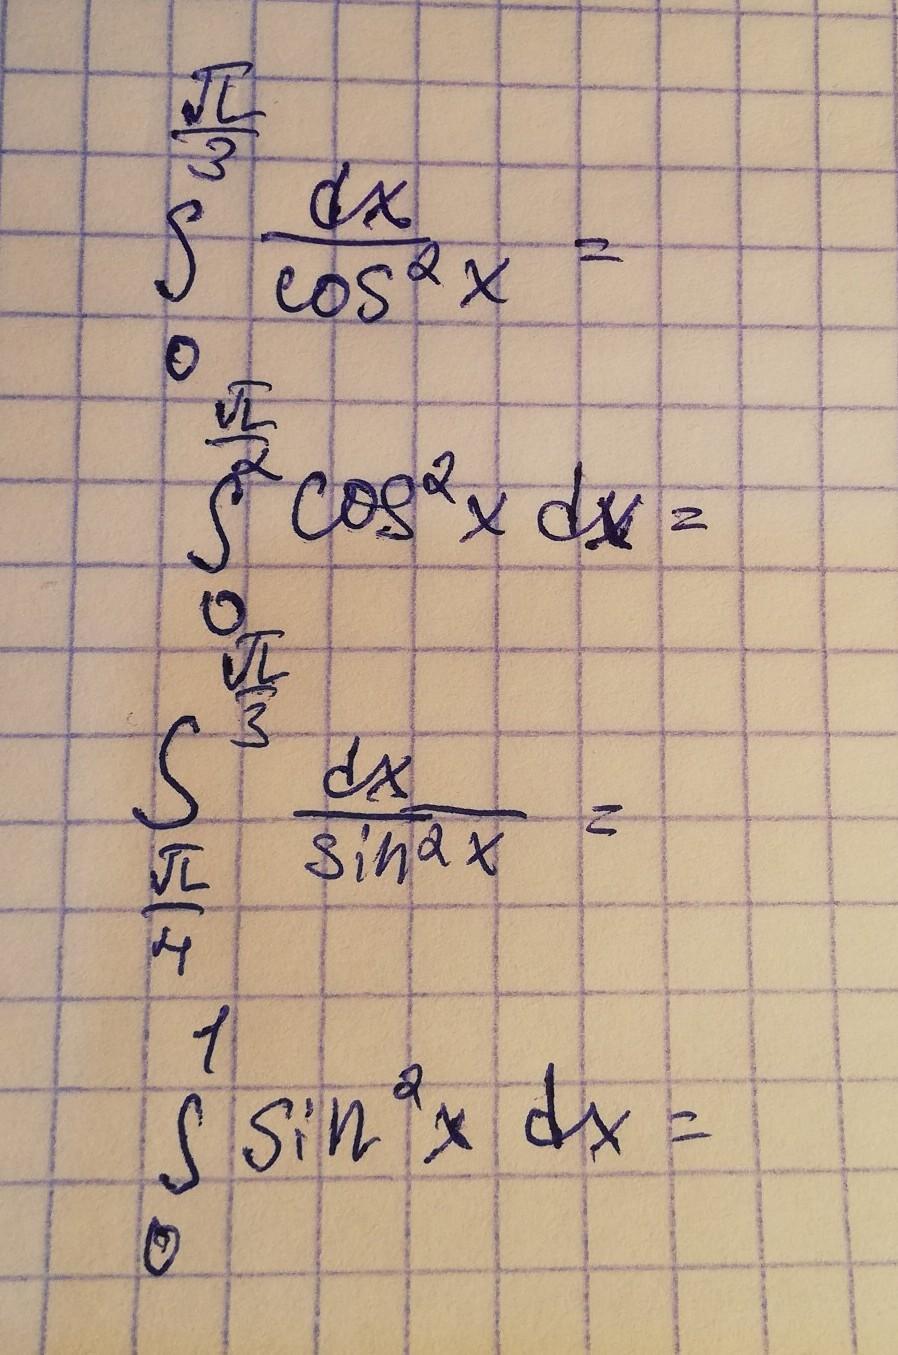 π/3
∫ dx/cos²x =
0
π/2
∫ cos²x dx =
0
π/3
∫ dx/sin²x =
π/4
1
∫ sin²x dx =
0